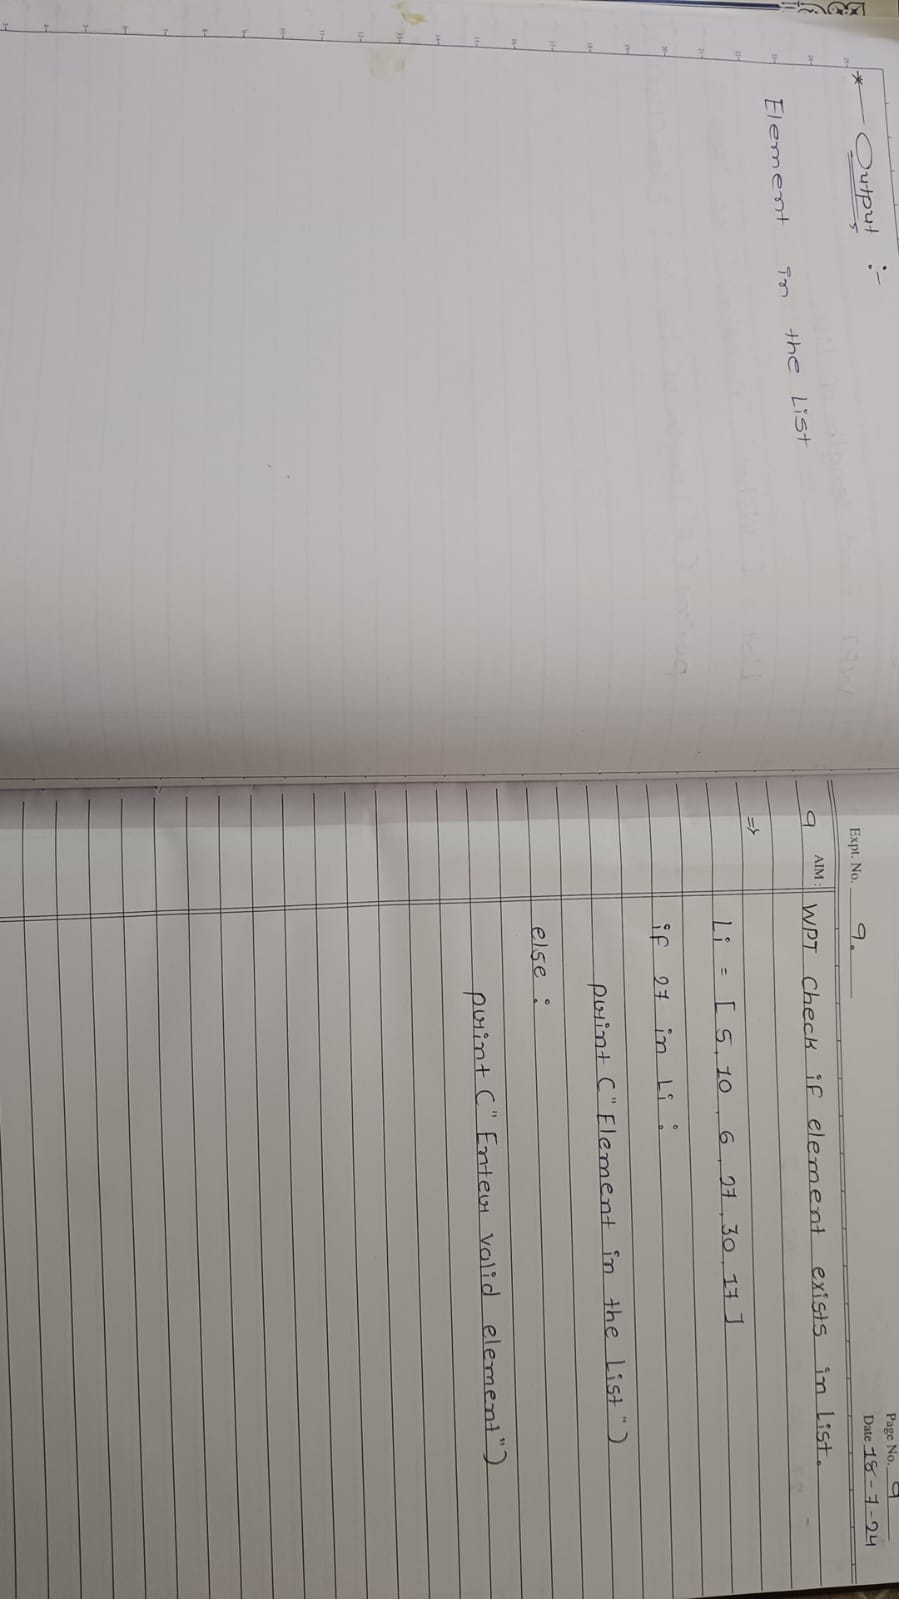 * Output :-
Element in the List
Page No. 9
Expt. No. 9.
Date 18-7-24
9 AIM: WPT Check if element exists in List.
=>
Li = [ 5, 10, 6, 27, 30, 17 ]
if 27 in Li :
print ( " Element in the List " )
else :
print ( " Enter valid element " )